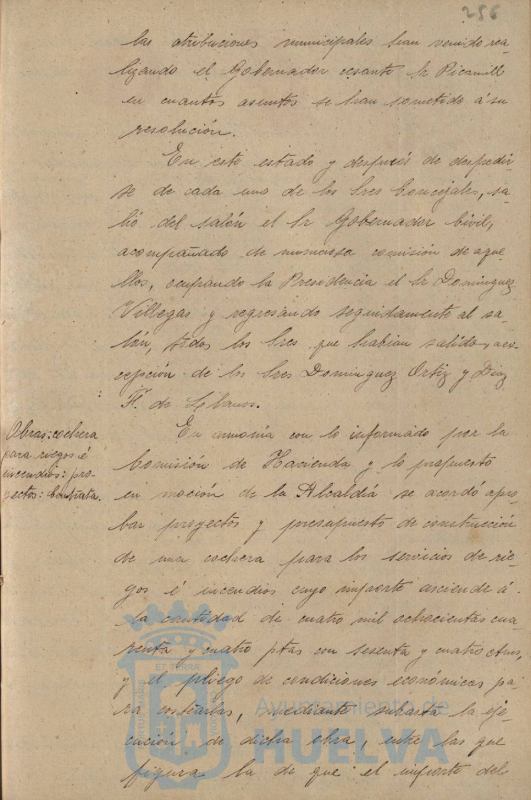 256
las atribuciones municipales han venido rea-
lizando el Gobernador cesante Sr Picamill
en cuantos asuntos se han sometido á su
resolución.
En este estado y después de despedir-
se de cada uno de los Sres Concejales, sa-
lió del salón el Sr Gobernador Civil,
acompañado de numerosa comisión de aque-
llos, ocupando la Presidencia el Sr Dominguez
Villegas y regresando seguidamente al sa-
lón, todos los Sres que habian salido, á ex-
cepción de los Sres Dominguez Ortiz y Diaz
F. de
Obras: cochera
para riegos é
incendios: pro-
yectos: Contrata.
En armonía con lo informado por la
Comisión de Hacienda y lo propuesto
en moción de la Alcaldía se acordó apro-
bar proyectos y presupuesto de construcción
de una cochera para los servicios de rie-
gos é incendios cuyo importe asciende á
la cantidad de cuatro mil ochocientas cua-
renta y cuatro ptas con sesenta y cuatro ctms,
y el pliego de condiciones económicas pa-
ra contratar, mediante subasta la eje-
cución de dicha obra, entre las que
figura la de que el importe del
ET TERRAE
Ayuntamiento de
HUELVA